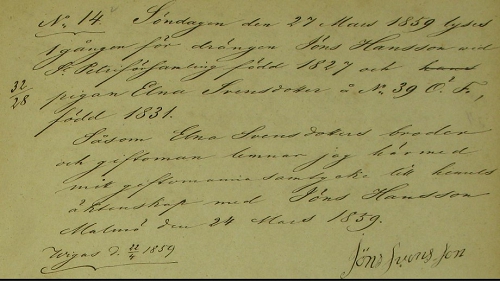 No 14. Söndagen den 27 Mars 1859 lyses
1 gången för drängen Jöns Hansson wid
St. Petri församling född 1827 och hans
32/28 pigan Elna Svensdoter å No 39 Ö. F.,
född 1831.
Såsom Elna Svensdoters broder
och giftoman lemnar jag härmed
mitt giftomanna samtycke till hennes
äktenskap med Jöns Hansson
Malmö den 24 Mars 1859.
Wigas d. 22/4 1859
Jöns Svensson